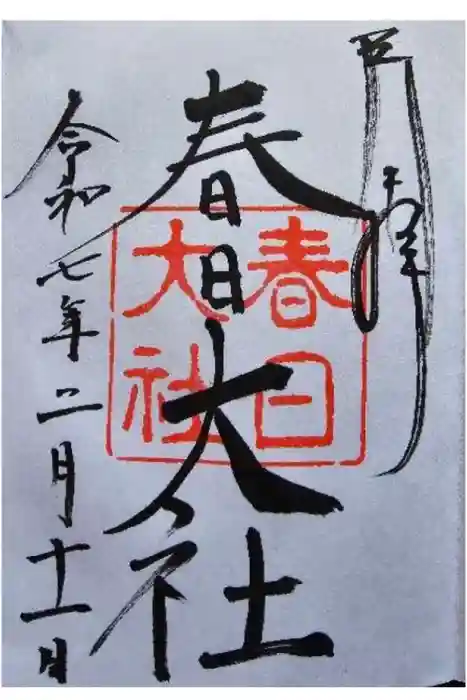 春日大社
春日
大社
令和七年二月十一日